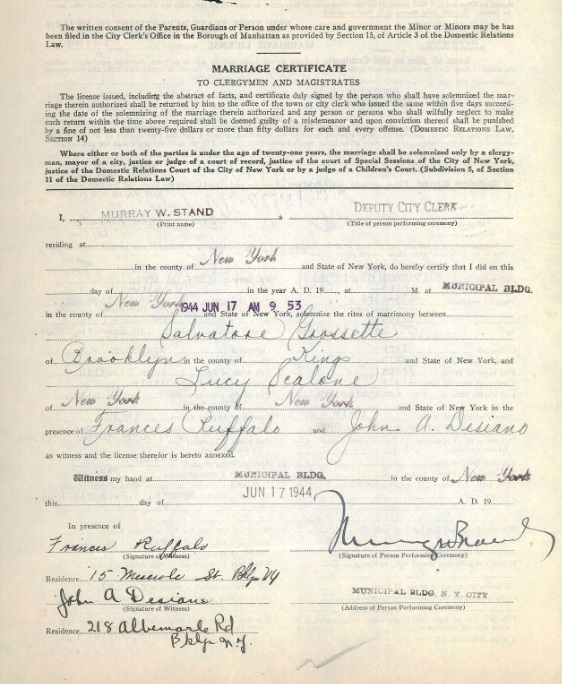 The written consent of the Parents, Guardians or Person under whose care and government the Minor or Minors may be has
been filed in the City Clerk's Office in the Borough of Manhattan as provided by Section 15, of Article 3 of the Domestic Relations
Law.
MARRIAGE CERTIFICATE
TO CLERGYMEN AND MAGISTRATES
The license issued, including the abstract of facts, and certificate duly signed by the person who shall have solemnized the mar-
riage therein authorized shall be returned by him to the office of the town or city clerk who issued the same within five days succeed-
ing the date of the solemnizing of the marriage therein authorized and any person or persons who shall wilfully neglect to make
such return within the time above required shall be deemed guilty of a misdemeanor and upon conviction thereof shall be punished
by a fine of not less than twenty-five dollars or more than fifty dollars for each and every offense. (DOMESTIC RELATIONS LAW,
SECTION 14)
Where either or both of the parties is under the age of twenty-one years, the marriage shall be solemnized only by a clergy-
man, mayor of a city, justice or judge of a court of record, justice of the court of Special Sessions of the City of New York,
justice of the Domestic Relations Court of the City of New York or by a judge of a Children's Court. (Subdivision 5, of Section
11 of the Domestic Relations Law)
I, MURRAY W. STAND a DEPUTY CITY CLERK
(Print name) (Title of person performing ceremony)
residing at
in the county of New York and State of New York, do hereby certify that I did on this
day of in the year A. D. 19 at M. at MUNICIPAL BLDG.
in the county of New York 1944 JUN 17 AM 9 53 and State of New York, solemnize the rites of matrimony between
Salvatore Grossette
of Brooklyn in the county of Kings and State of New York, and
Lucy Scalone
of New York in the county of New York and State of New York in the
presence of Frances Ruffalo and John A. Desiano
as witness and the license therefor is hereto annexed.
Witness my hand at MUNICIPAL BLDG. in the county of New York
JUN 17 1944
this day of A. D. 19
In presence of
Frances Ruffalo
(Signature of Witness) (Signature of Person Performing Ceremony)
Residence 15 St. Bklyn NY
John A Desiano MUNICIPAL BLDG. N. Y. CITY
(Signature of Witness) (Address of Person Performing Ceremony)
Residence 218 Albemarle Rd
Bklyn N.Y.